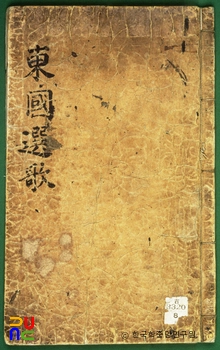 東國選歌
© 한국학중앙연구원